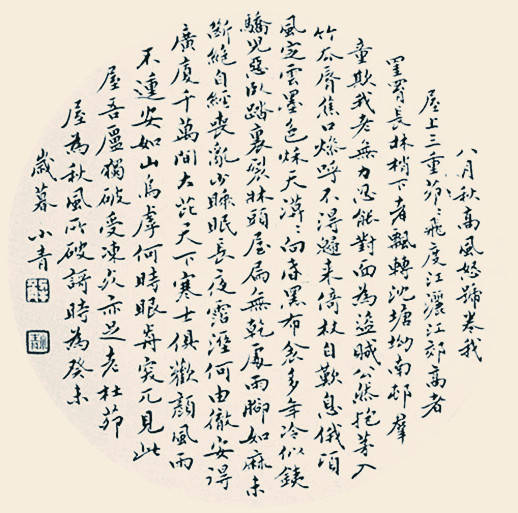 八月秋高風怒號卷我
屋上三重茅〻飛度江灑江郊高者
罥長林梢下者飄轉沈塘坳南邨羣
童欺我老無力忍能對面為盜賊公然抱茅入
竹厺脣焦口燥呼不得歸來倚杖自歎息俄頃
風定雲墨色秋天漠〻向昏黑布衾多年冷似鐵
驕兒惡臥踏裏裂牀頭屋漏無乾處雨腳如麻未
斷絕自經喪亂少睡眠長夜霑溼何由徹安得
廣廈千萬間大庇天下寒士俱歡顏風雨
不動安如山烏虖何時眼前突兀見此
屋吾廬獨破受凍死亦足老杜茆
屋為秋風所破謌時為癸未
歲暮 小青